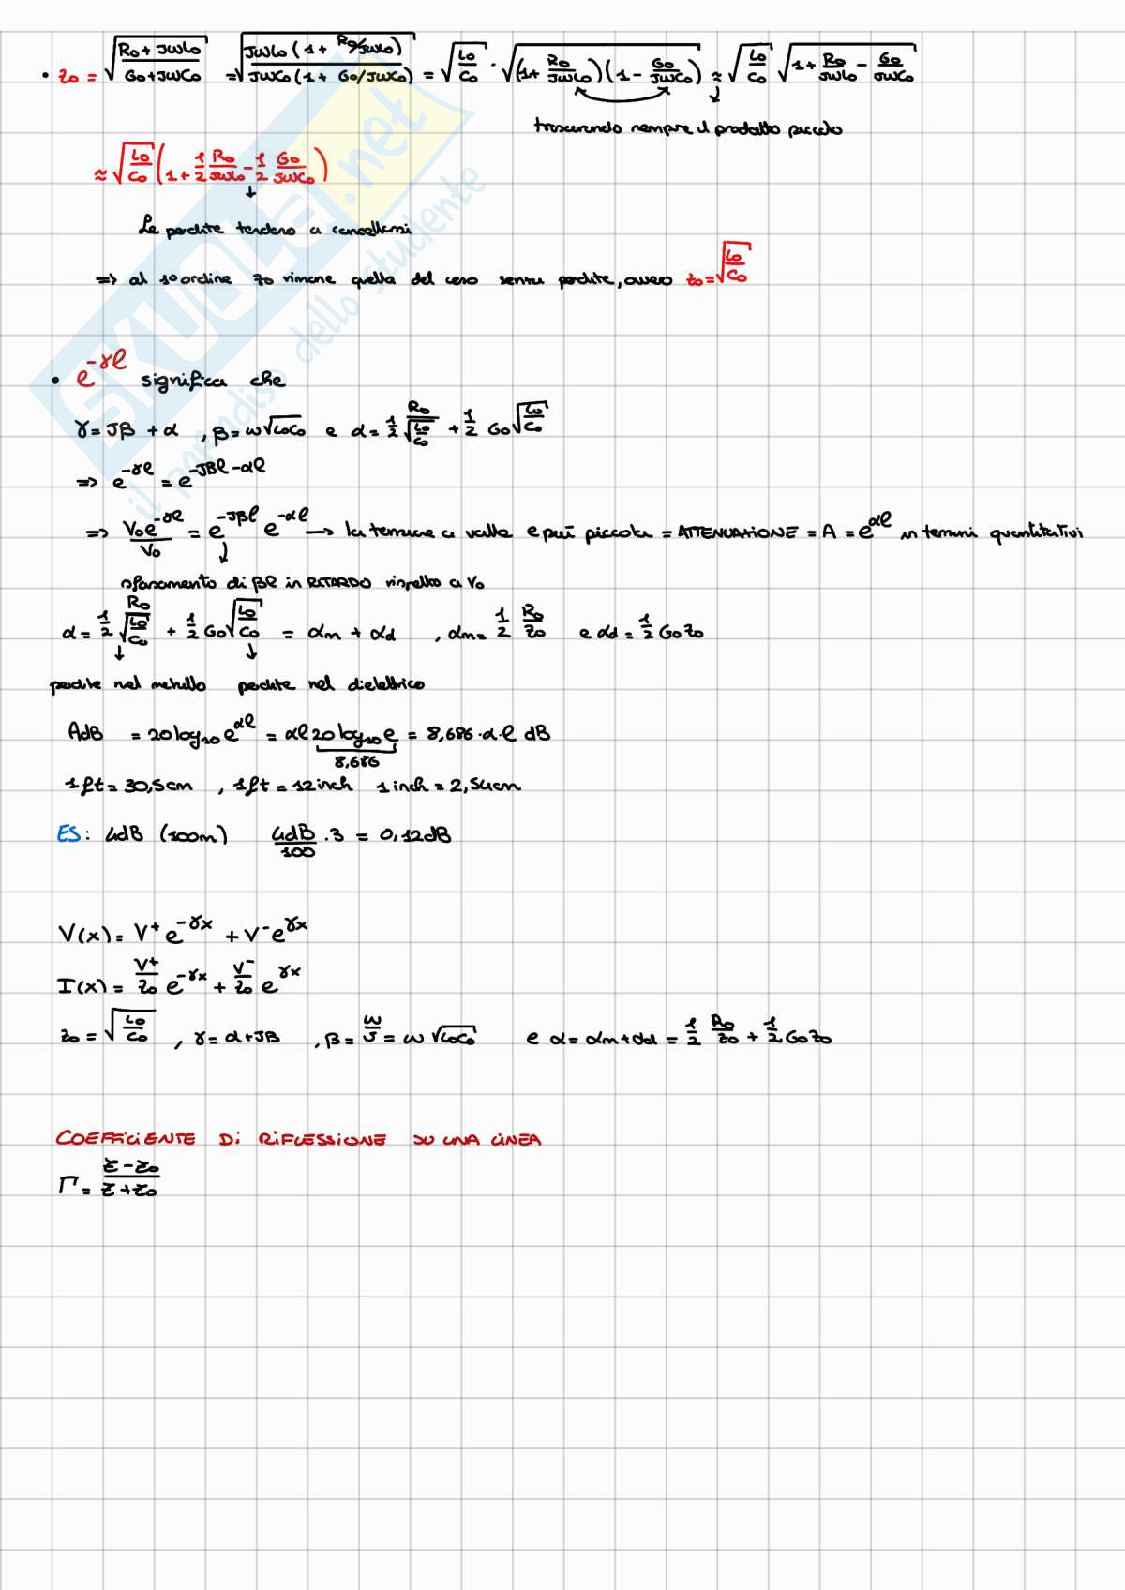 • z₀ = √((R₀+jωL₀)/(G₀+jωC₀)) = √((jωL₀(1+R₀/jωL₀))/(jωC₀(1+G₀/jωC₀))) = √(L₀/C₀) · √((1+R₀/jωL₀)(1-G₀/jωC₀)) ≈ √(L₀/C₀) √(1+R₀/jωL₀-G₀/jωC₀)
↓
trascurendo sempre il prodotto piccolo
≈ √(L₀/C₀) (1+½ R₀/jωL₀ - ½ G₀/jωC₀)
↓
Le perdite tendono a cancellarsi
=> al 1º ordine z₀ rimane quella del caso senza perdite, ovvero z₀=√(L₀/C₀)
• e^{-γℓ} significa che
γ=Jβ+α , β=ω√(L₀C₀) e α=½ R₀/√(L₀/C₀) + ½ G₀√(L₀/C₀)
=> e^{-γℓ} = e^{-Jβℓ-αℓ}
=> V₀e^{-γℓ}/V₀ = e^{-Jβℓ} e^{-αℓ} → la tensione a valle e più piccola = ATTENUAZIONE = A = e^{αℓ} in termini quantitativi
↓
sfasamento di βℓ in RITARDO rispetto a V₀
α = ½ R₀/√(L₀/C₀) + ½ G₀√(L₀/C₀) = αm + αd , αm= ½ R₀/z₀ e αd = ½ G₀z₀
↓ ↓
perdite nel metallo perdite nel dielettrico
AdB = 20log₁₀e^{αℓ} = αℓ 20log₁₀e = 8,686·α·ℓ dB
8,686
1ft = 30,5cm , 1ft = 12inch 1inch = 2,54cm
ES: 4dB (100m) 4dB/100 · 3 = 0,12dB
V(x) = V⁺ e^{-γx} + V⁻ e^{γx}
I(x) = V⁺/z₀ e^{-γx} + V⁻/z₀ e^{γx}
z₀ = √(L₀/C₀) , γ=α+Jβ , β=ω/v=ω√(L₀C₀) e α=αm+αd = ½ R₀/z₀ + ½ G₀z₀
COEFFICIENTE DI RIFLESSIONE SU UNA LINEA
Γ = (z-z₀)/(z+z₀)
SKUOLA.net
il paradiso dello studente